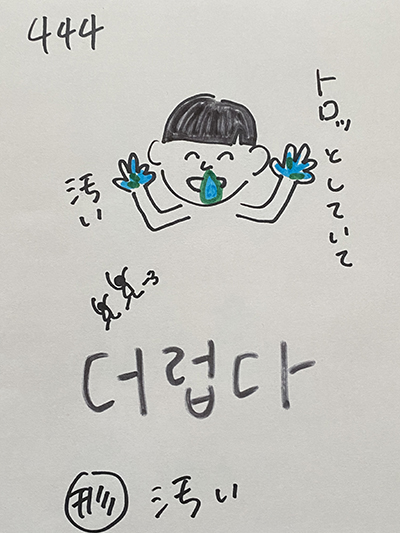 444
トロッとしていて
汚い
더럽다
形 汚い